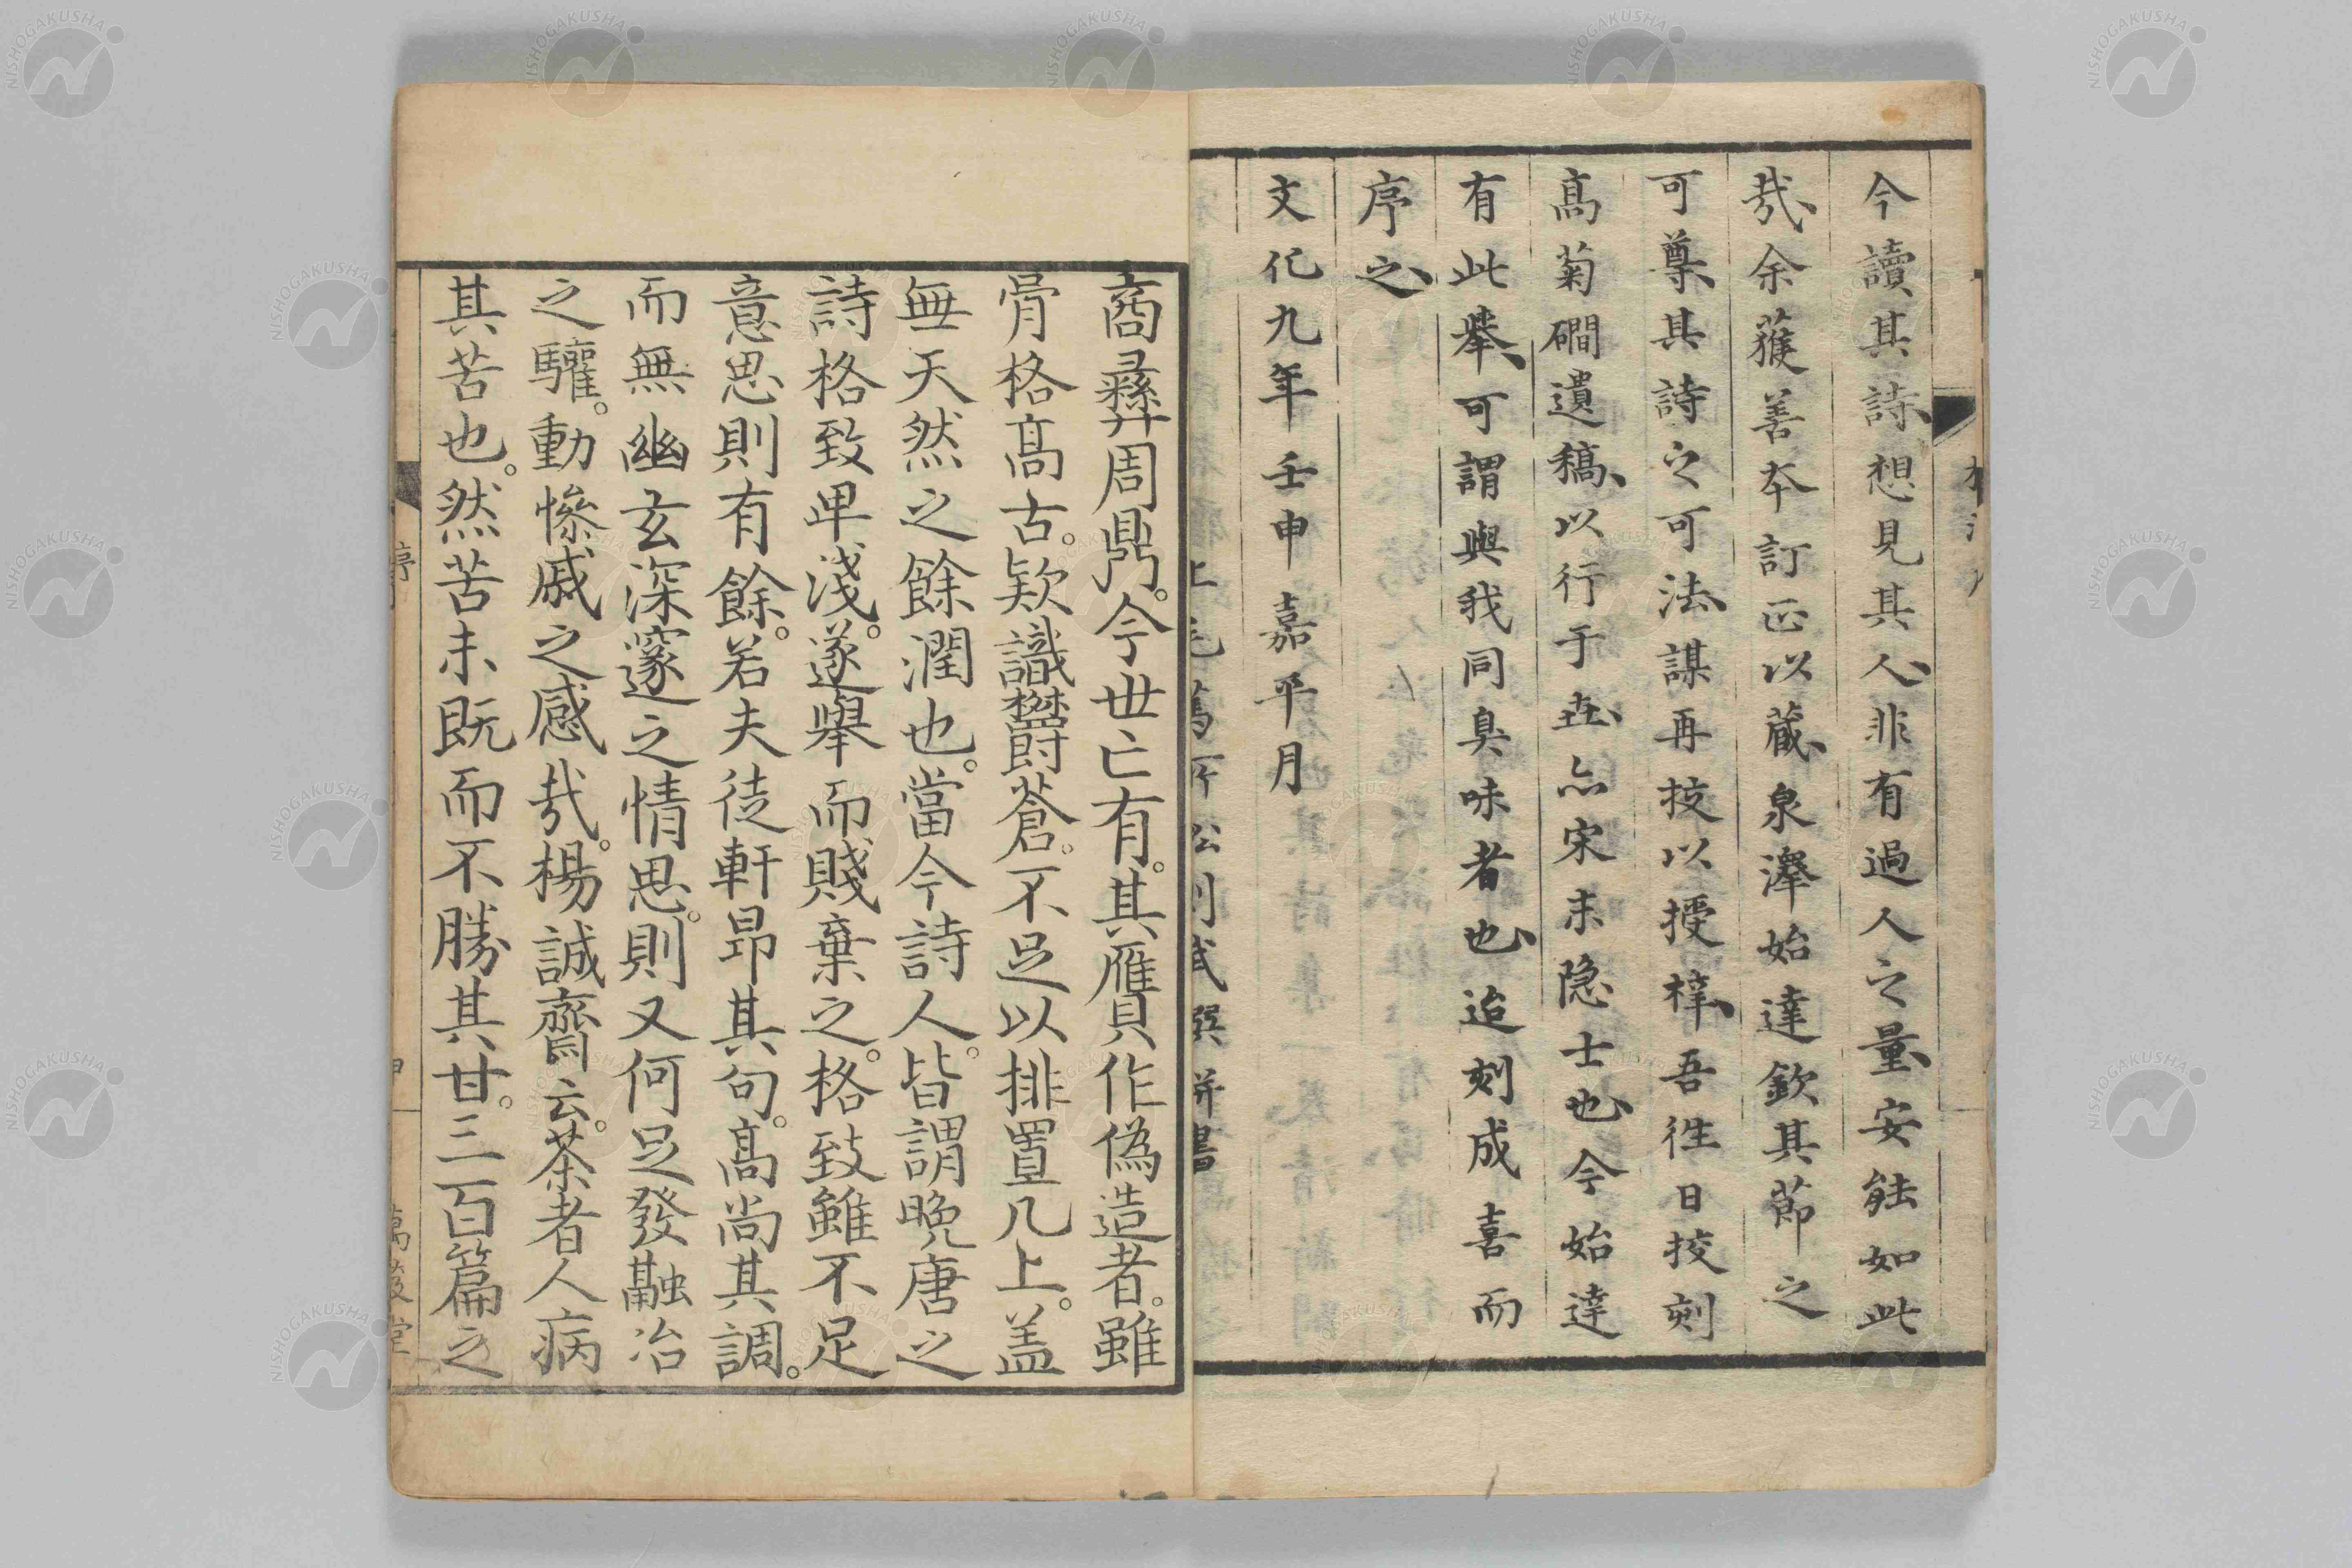 今讀其詩、想見其人、非有過人之量、安能如此
哉、余獲善本訂正以藏、泉澤始達欽其節之
可尊、其詩之可法、謀再挍以授梓、吾徃日挍刻
髙菊磵遺稿、以行于世、亦宋末隐士也、今始達
有此舉、可謂與我同臭味者也、迨刻成喜而
序之、
文化九年壬申嘉平月
上毛 撰并書
商彝周鼎。今世亡有。其贋作偽造者。雖
骨格髙古。欵識欝蒼。不足以排置几上。盖
無天然之餘潤也。當今詩人。皆謂晩唐之
詩格致卑淺。遂舉而賤棄之。格致雖不足
意思則有餘。若夫徒軒昂其句。髙尚其調。
而無幽玄深邃之情思。則又何足發融冶
之驩。動慘戚之感哉。楊誠齋云。茶者人病
其苦也。然苦未既而不勝其甘。三百篇之
序